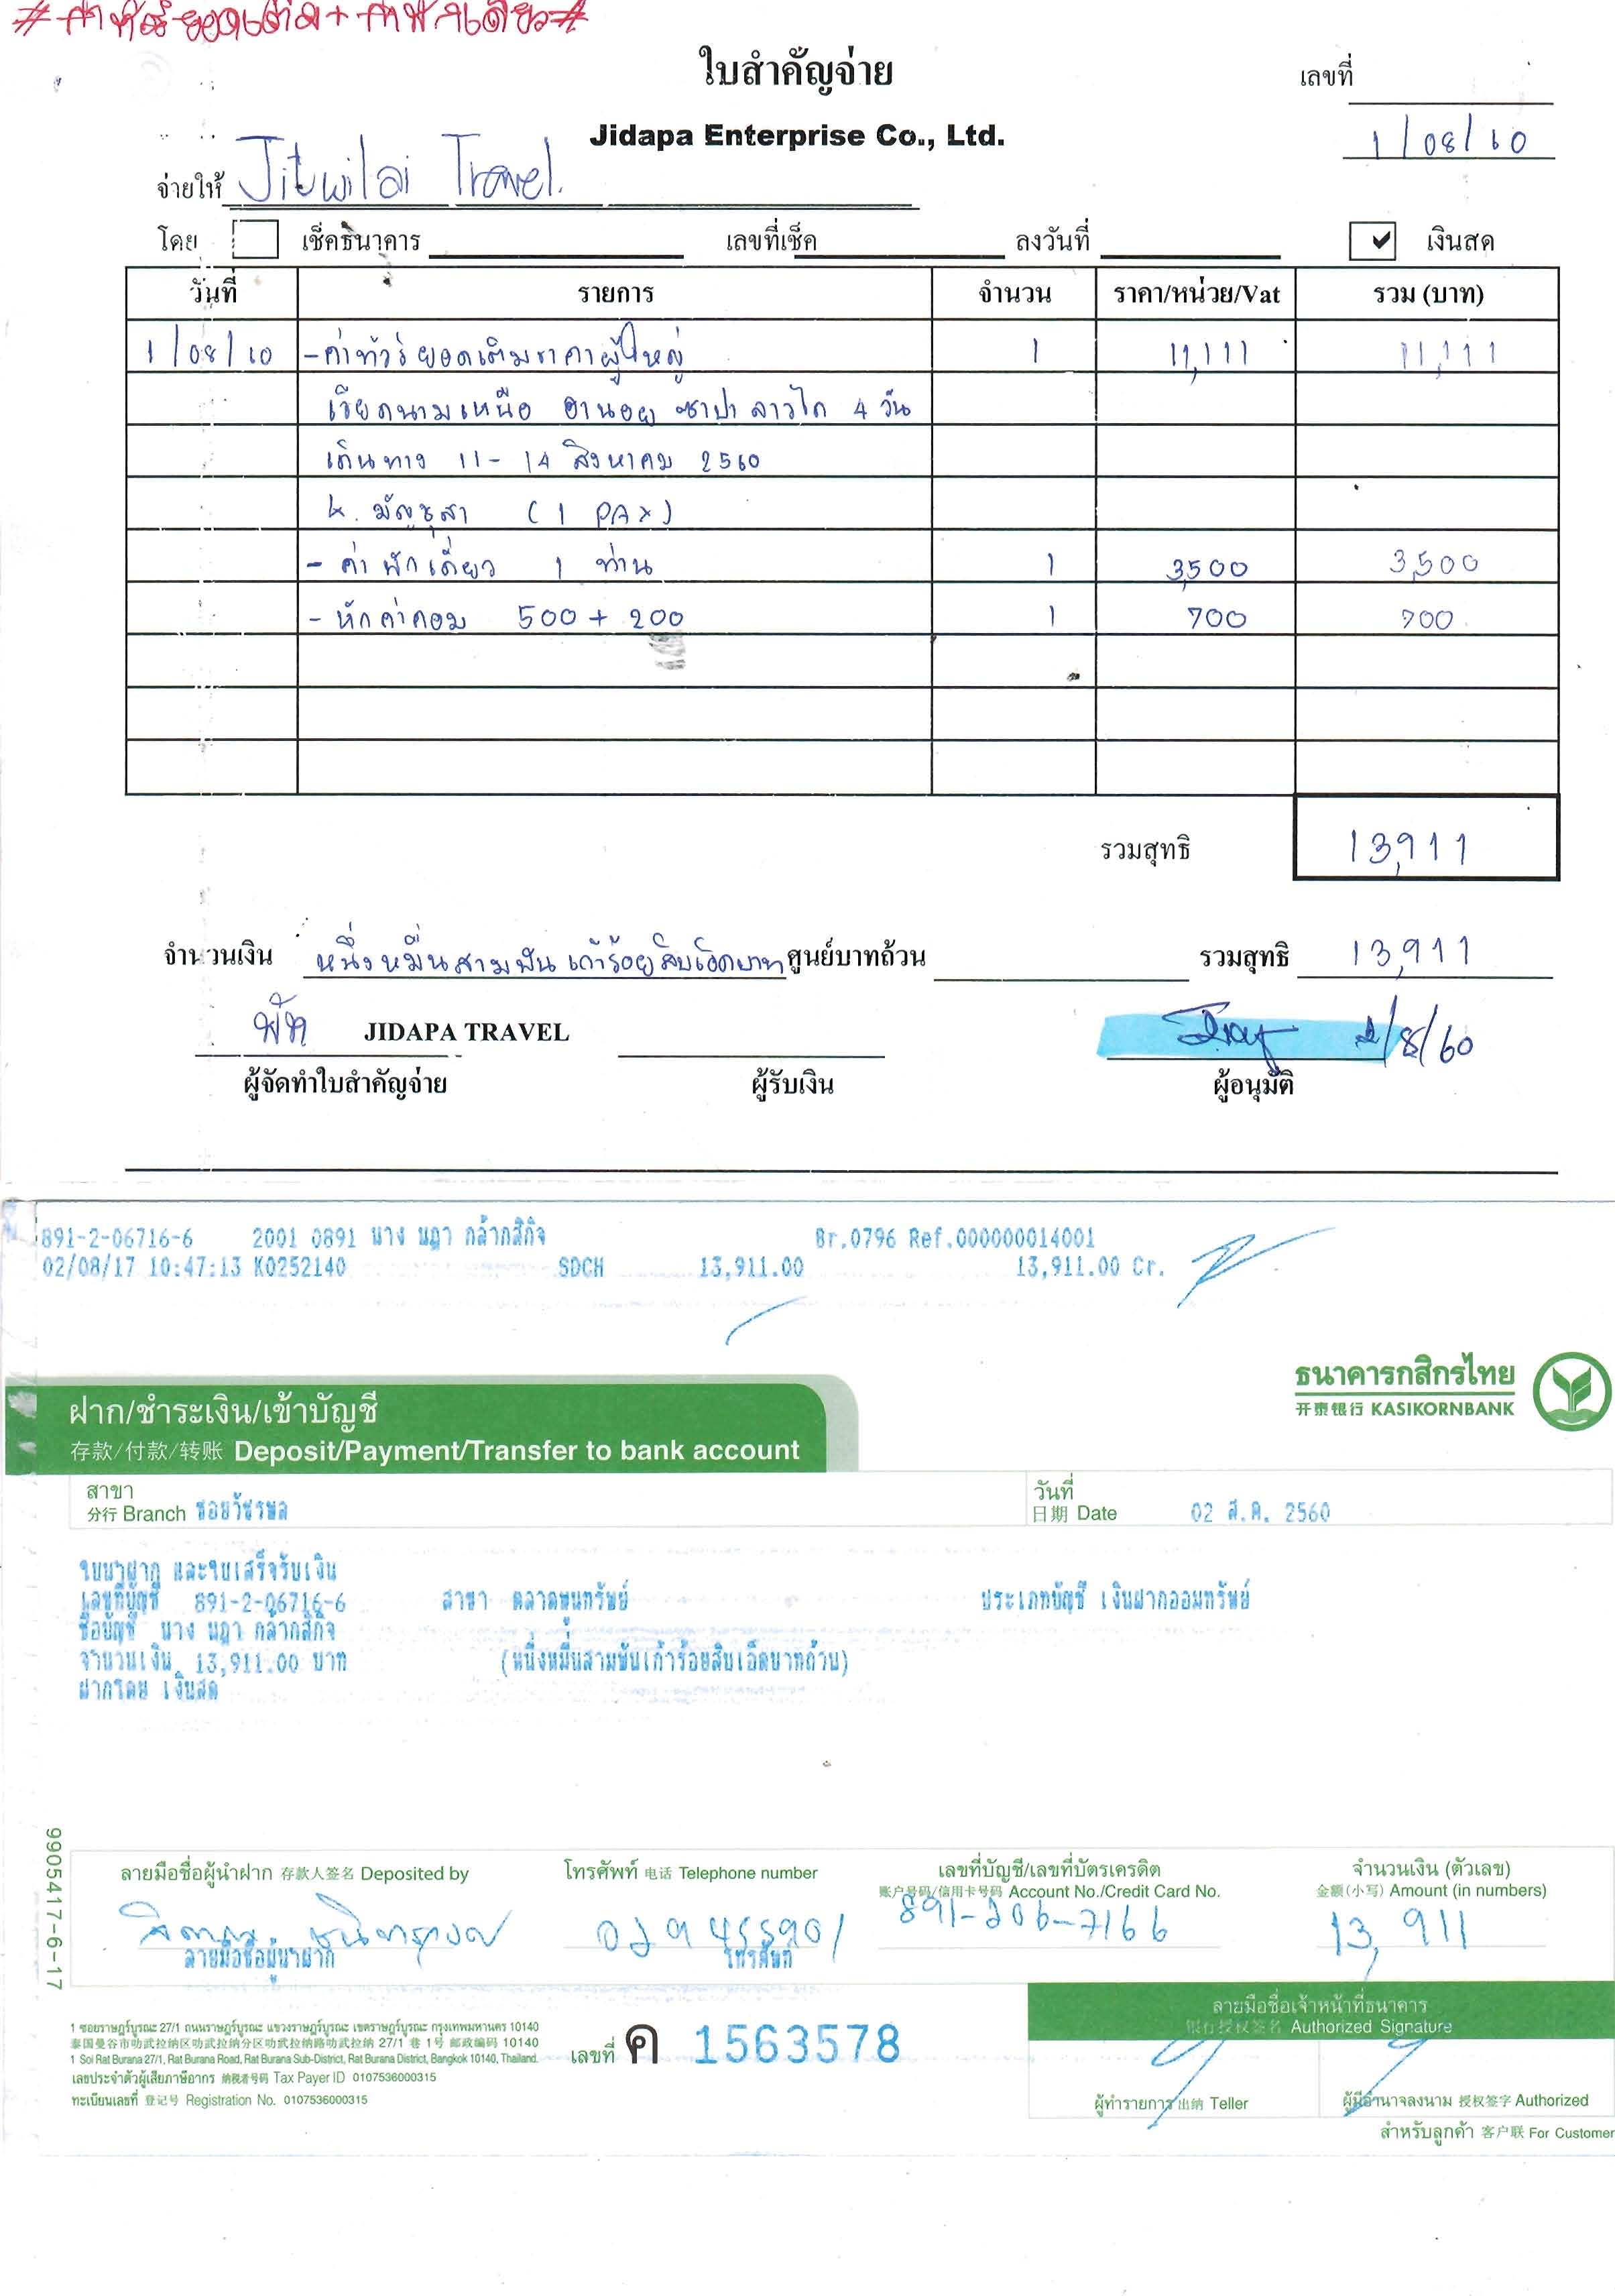 #ค่าทัวร์ยอดเต็ม+ค่าพักเดี่ยว#
ใบสำคัญจ่าย
เลขที่
Jidapa Enterprise Co., Ltd.
1/08/60
จ่ายให้ Jitwilai Travel.
โดย เช็คธนาคาร เลขที่เช็ค ลงวันที่ ✔ เงินสด
วันที่ รายการ จำนวน ราคา/หน่วย/Vat รวม (บาท)
1/08/60 -ค่าทัวร์ยอดเต็มราคาผู้ใหญ่ 1 11,111 11,111
เวียดนามเหนือ ฮานอย ซาปา ลาวไก 4 วัน
เดินทาง 11-14 สิงหาคม 2560
k. มัญชุสา (1 PAX)
- ค่าพักเดี่ยว 1 ท่าน 1 3,500 3,500
- หักค่าคอม 500 + 200 1 700 700
รวมสุทธิ 13,911
จำนวนเงิน หนึ่งหมื่นสามพันเก้าร้อยสิบเอ็ดบาท ศูนย์บาทถ้วน รวมสุทธิ 13,911
JIDAPA TRAVEL 2/8/60
ผู้จัดทำใบสำคัญจ่าย ผู้รับเงิน ผู้อนุมัติ
891-2-06716-6 2001 0891 นาง นฎา กล้ากสิกิจ Br.0796 Ref.000000014001
02/08/17 10:47:13 K0252140 SDCH 13,911.00 13,911.00 Cr.
ธนาคารกสิกรไทย
开泰银行 KASIKORNBANK
ฝาก/ชำระเงิน/เข้าบัญชี
存款/付款/转账 Deposit/Payment/Transfer to bank account
สาขา วันที่
分行 Branch ซอยวัชรพล 日期 Date 02 ส.ค. 2560
ใบนำฝาก และใบเสร็จรับเงิน
เลขที่บัญชี 891-2-06716-6 สาขา ตลาดพูนทรัพย์ ประเภทบัญชี เงินฝากออมทรัพย์
ชื่อบัญชี นาง นฎา กล้ากสิกิจ
จำนวนเงิน 13,911.00 บาท (หนึ่งหมื่นสามพันเก้าร้อยสิบเอ็ดบาทถ้วน)
ฝากโดย เงินสด
9905417-6-17
ลายมือชื่อผู้นำฝาก 存款人签名 Deposited by โทรศัพท์ 电话 Telephone number เลขที่บัญชี/เลขที่บัตรเครดิต จำนวนเงิน (ตัวเลข)
账户号码/信用卡号码 Account No./Credit Card No. 金额(小写) Amount (in numbers)
029455901 891-206-7166 13,911
ลายมือชื่อผู้นำฝาก โทรศัพท์
ลายมือชื่อเจ้าหน้าที่ธนาคาร
银行授权签名 Authorized Signature
1 ซอยราษฎร์บูรณะ 27/1 ถนนราษฎร์บูรณะ แขวงราษฎร์บูรณะ เขตราษฎร์บูรณะ กรุงเทพมหานคร 10140
泰国曼谷市叻武拉纳区叻武拉纳分区叻武拉纳路叻武拉纳 27/1 巷 1 号 邮政编码 10140
1 Soi Rat Burana 27/1, Rat Burana Road, Rat Burana Sub-District, Rat Burana District, Bangkok 10140, Thailand.
เลขที่ ค 1563578
เลขประจำตัวผู้เสียภาษีอากร 纳税者号码 Tax Payer ID 0107536000315
ทะเบียนเลขที่ 登记号 Registration No. 0107536000315
ผู้ทำรายการ 出纳 Teller ผู้มีอำนาจลงนาม 授权签字 Authorized
สำหรับลูกค้า 客户联 For Customer